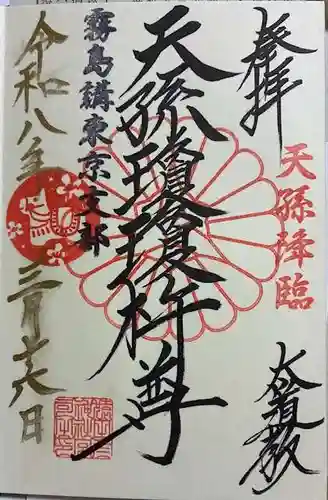 奉拝
天孫降臨
大道教
天孫瓊瓊杵尊
霧島講東京支部
令和八年三月十八日